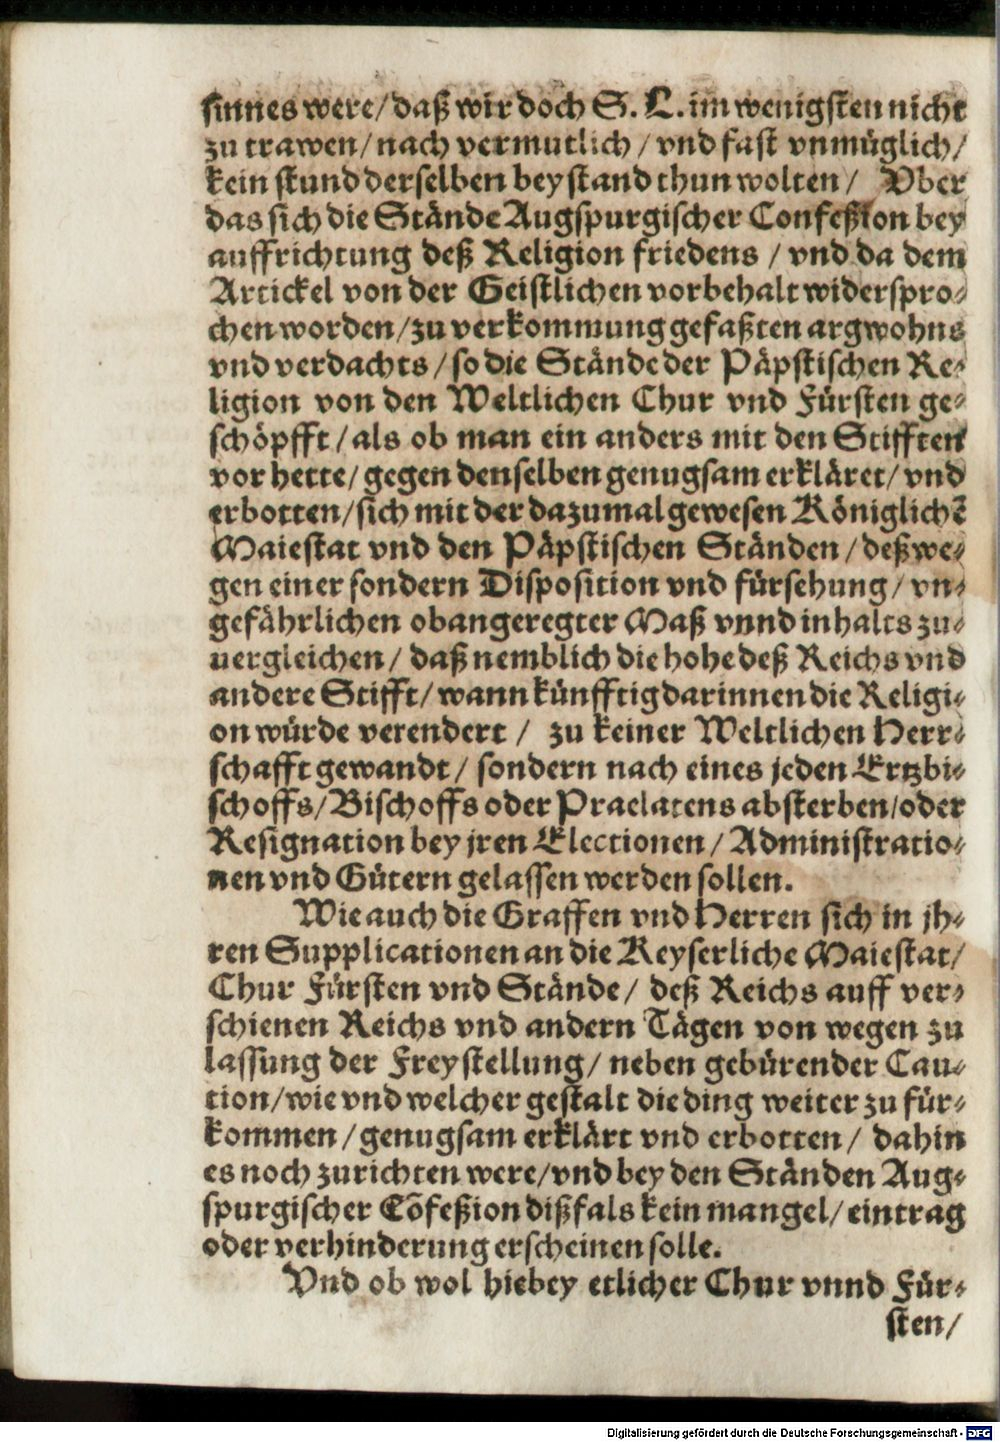 sinnes were/ daß wir doch S. L. im wenigsten nicht
zu trawen/ nach vermutlich/ vnd fast vnmüglich/
kein stund derselben beystand thun wolten/ Vber
das sich die Stände Augspurgischer Confeßion bey
auffrichtung deß Religion friedens / vnd da dem
Artickel von der Geistlichen vorbehalt widerspro-
chen worden/ zu verkommung gefaßten argwohns
vnd verdachts/ so die Stände der Päpstischen Re-
ligion von den Weltlichen Chur vnd Fürsten ge-
schöpfft/ als ob man ein anders mit den Stifften
vor hette/ gegen denselben genugsam erkläret/ vnd
erbotten/ sich mit der dazumal gewesen Königlichẽ
Maiestat vnd den Päpstischen Ständen/ deßwe-
gen einer sondern Disposition vnd fürsehung/ vn-
gefährlichen obangeregter Maß vnnd inhalts zu-
uergleichen/ daß nemblich die hohe deß Reichs vnd
andere Stifft/ wann künfftig darinnen die Religi-
on würde verendert / zu keiner Weltlichen Herr-
schafft gewandt/ sondern nach eines jeden Ertzbi-
schoffs/ Bischoffs oder Praelatens absterben/ oder
Resignation bey jren Electionen/ Administratio-
nen vnd Gütern gelassen werden sollen.
Wie auch die Graffen vnd Herren sich in jh-
ren Supplicationen an die Keyserliche Maiestat/
Chur Fürsten vnd Stände/ deß Reichs auff ver-
schienen Reichs vnd andern Tägen von wegen zu
lassung der Freystellung/ neben gebürender Cau-
tion/ wie vnd welcher gestalt die ding weiter zu für-
kommen/ genugsam erklärt vnd erbotten/ dahin
es noch zurichten were/ vnd bey den Ständen Aug-
spurgischer Cõfeßion dißfals kein mangel/ eintrag
oder verhinderung erscheinen solle.
Vnd ob wol hiebey etlicher Chur vnnd Für-
sten/
Digitalisierung gefördert durch die Deutsche Forschungsgemeinschaft - DFG